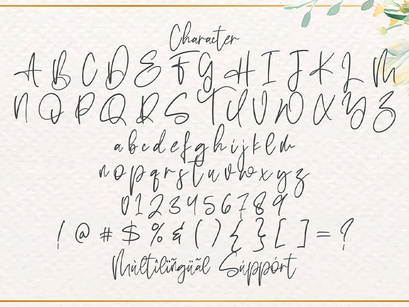 Character
A B C D E F G H I J K L M
N O P Q R S T U V W X Y Z
a b c d e f g h i j k l m
n o p q r s t u v w x y z
0 1 2 3 4 5 6 7 8 9
! @ # $ % & ( ) { } [ ] = ?
Mùltilïñgüãl Súppört